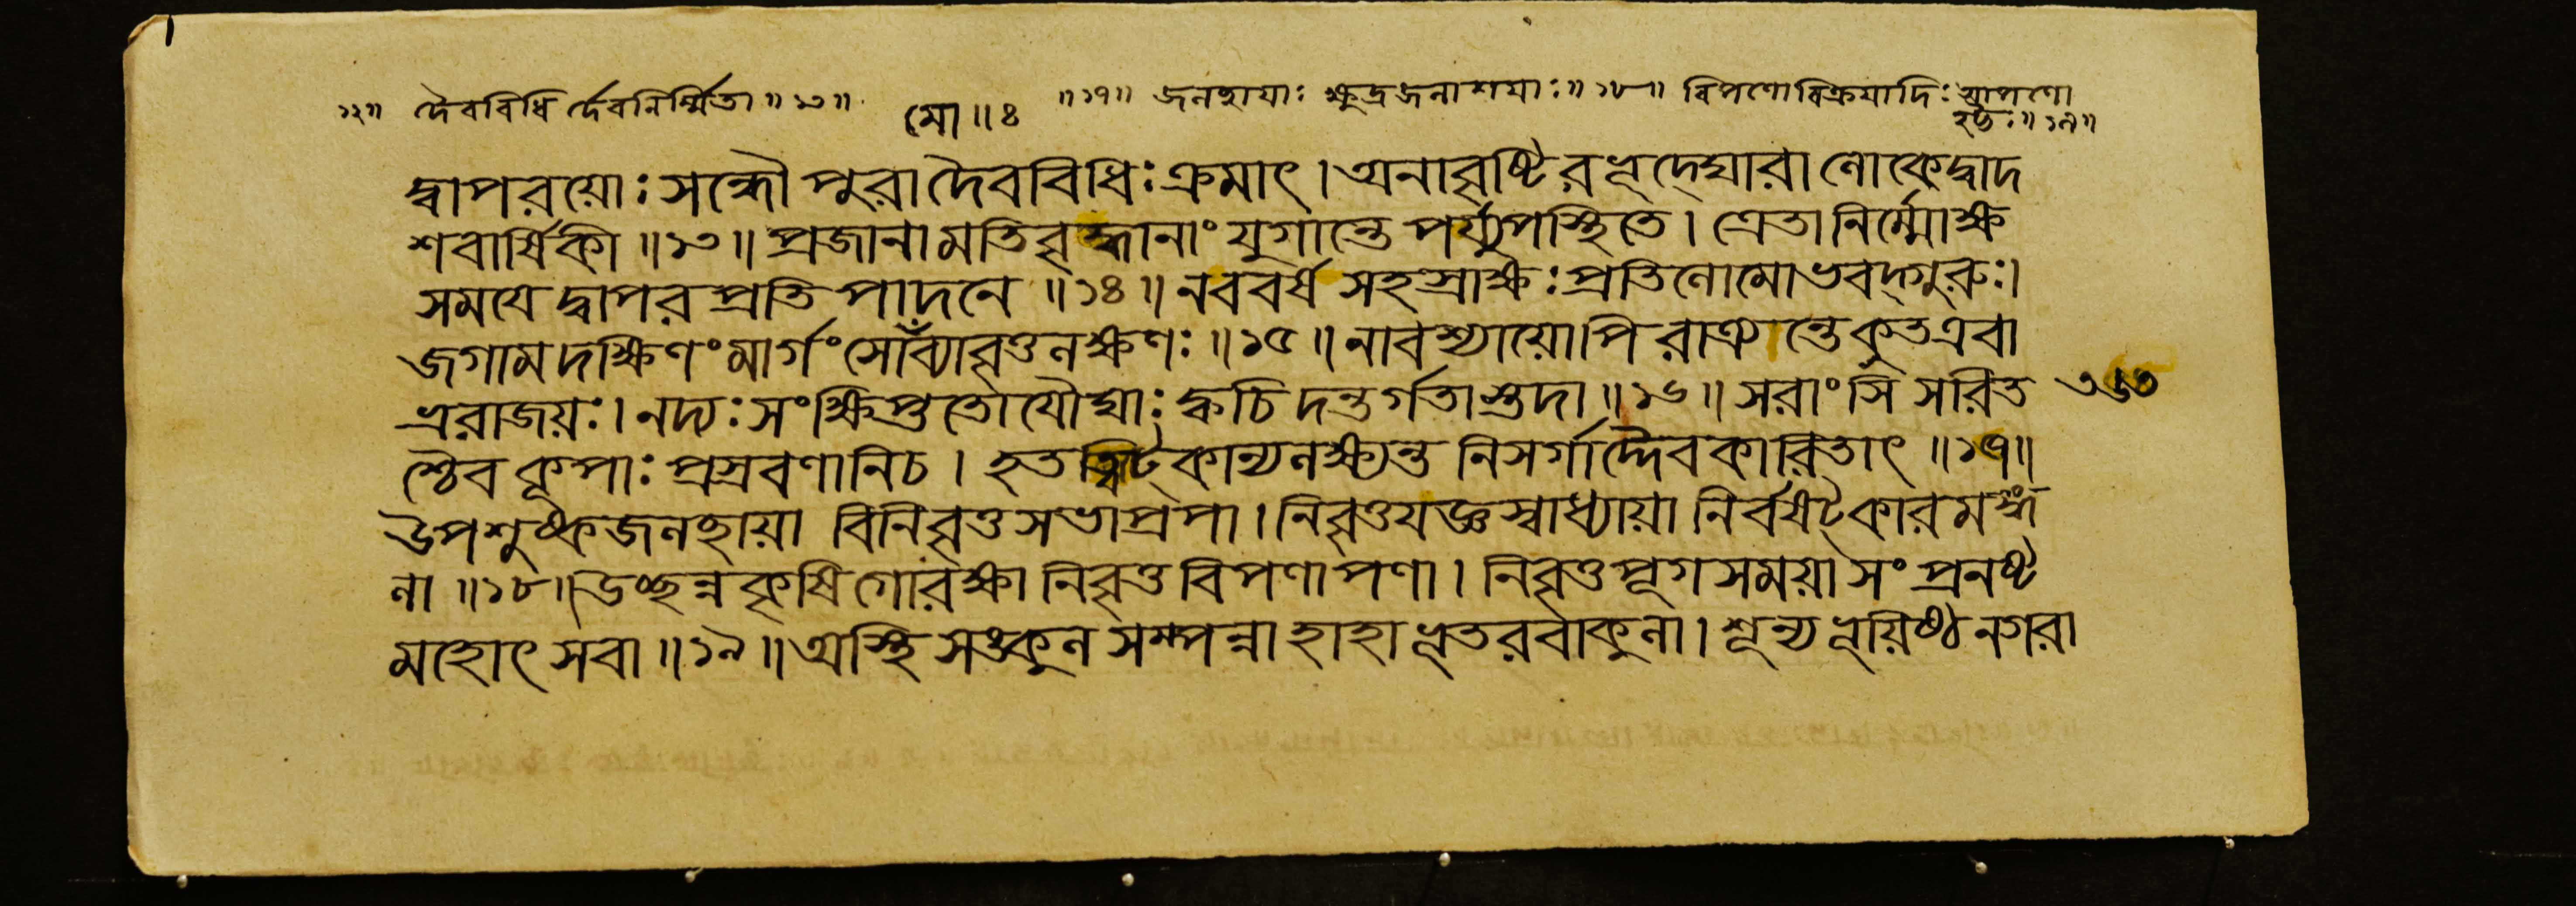 ১২॥ দৈববিধি র্দেবনির্ম্মিতা॥১৩॥ মো॥ঃ ॥১৭॥ জলস্থায়াঃ ক্ষুদ্রজলাশয়াঃ॥১৮॥ বিপণোবিক্রয়াদিঃ আপণো
হট্টঃ॥১৯॥
দ্বাপরয়োঃ সন্ধৌ পুরা দৈববিধিঃক্রমাৎ। অনাবৃষ্টিরভূদ্ঘোরা লোকেদ্বাদ
শবার্ষিকী॥১৩॥ প্রজানামতিবৃদ্ধানাং যুগান্তে পর্য্যুপস্থিতে। ত্রেতানির্ম্মোক্ষ
সময়ে দ্বাপরপ্রতিপাদনে॥১৪॥ নববর্ষ সহস্রাক্ষঃ প্রতিলোমোভবদ্গুরুঃ।
জগাম দক্ষিণং মার্গং সোমোব্যাবৃত্তলক্ষণঃ॥১৫॥ নাবশ্যায়োপি রাত্র্যন্তে কুতএবা
ভ্ররাজয়ঃ। নদ্যঃ সংক্ষিপ্ততোয়ৌঘাঃ ক্বচিদন্তর্গতাস্তদা॥১৬॥ সরাংসি সরিত
৩৬৩
শ্চৈব কূপাঃ প্রস্রবণানিচ। হতত্বিট্কান্যলক্ষ্যন্ত নিসর্গাদ্দৈবকারিতাৎ॥১৭॥
উপশুষ্কজলস্থায়া বিনিবৃত্তসভাপ্রপা। নিবৃত্তযজ্ঞস্বাধ্যায়া নির্বষট্কারমঙ্গ
লা॥১৮॥ উচ্ছন্নকৃষিগোরক্ষা নিবৃত্তবিপণাপণা। নিবৃত্তপূগসময়া সংপ্রনষ্ট
মহোৎসবা॥১৯॥ অস্থিসঙ্কুল সম্পন্না হাহাভূতরবাকুলা। শূন্যভূয়িষ্ঠনগরা